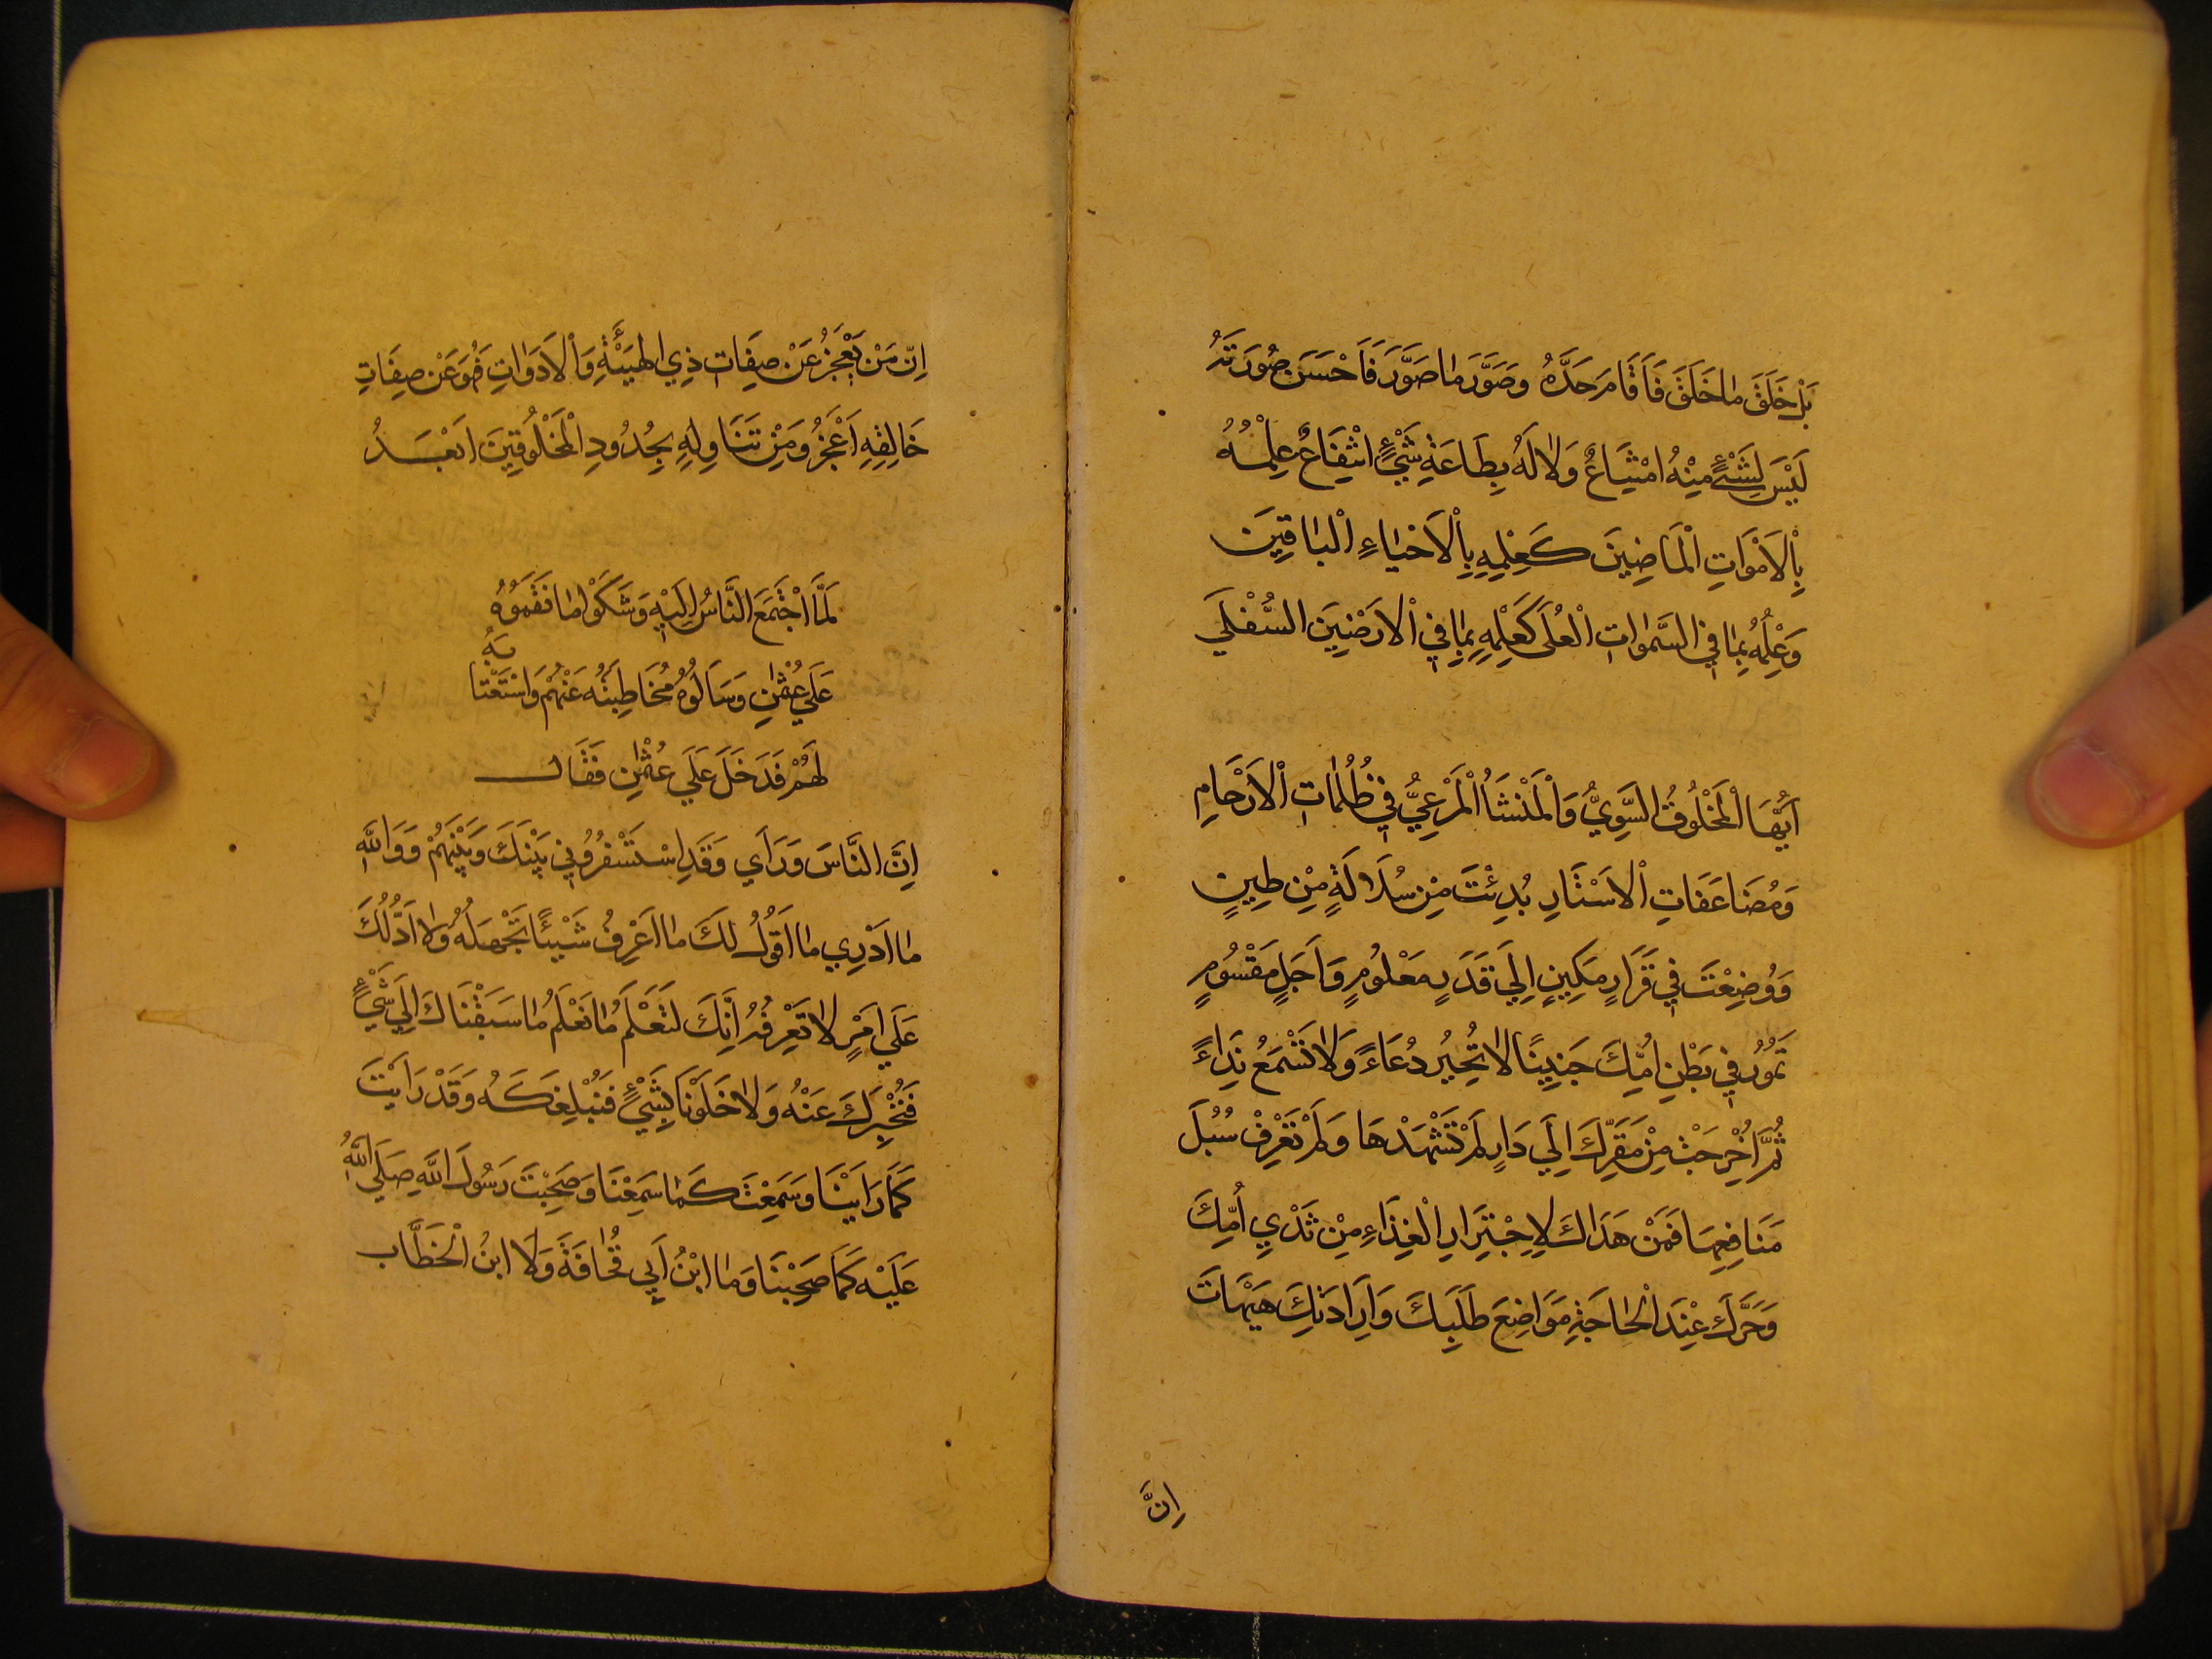 بَلْ خَلَقَ مَا خَلَقَ فَاَقَامَ حَدَّهُ وصَوَّرَ مَا صَوَّرَ فَاَحْسَنَ صُورَتَهُ
لَيْسَ لِشَيْءٍ مِنْهُ امْتِنَاعٌ وَلَا لَهُ بِطَاعَةِ شَيْءٍ انْتِفَاعٌ عِلْمُهُ
بِالْاَمْوَاتِ الْمَاضِينَ كَعِلْمِهِ بِالْاَحْيَاءِ الْبَاقِينَ
وَعِلْمُهُ بِمَا فِي السَّمٰوَاتِ الْعُلَى كَعِلْمِهِ بِمَا فِي الْاَرَضِينَ السُّفْلَي
اَيُّهَا الْمَخْلُوقُ السَّوِيُّ وَالْمُنْشَأُ الْمَرْعِيُّ فِي ظُلُمَاتِ الْاَرْحَامِ
وَمُضَاعَفَاتِ الْاَسْتَارِ بُدِئْتَ مِنْ سُلَالَةٍ مِنْ طِينٍ
وَوُضِعْتَ فِي قَرَارٍ مَكِينٍ اِلَي قَدَرٍ مَعْلُومٍ وَاَجَلٍ مَقْسُومٍ
تَمُورُ فِي بَطْنِ اُمِّكَ جَنِينًا لَا تُحِيرُ دُعَاءً وَلَا تَسْمَعُ نِدَاءً
ثُمَّ اُخْرِجْتَ مِنْ مَقَرِّكَ اِلَي دَارٍ لَمْ تَشْهَدْهَا وَلَمْ تَعْرِفْ سُبُلَ
مَنَافِعِهَا فَمَنْ هَدَاكَ لِاجْتِرَارِ الْغِذَاءِ مِنْ ثَدْيِ اُمِّكَ
وَحَرَّكَ عِنْدَ الْحَاجَةِ مَوَاضِعَ طَلَبِكَ وَاِرَادَتِكَ هَيْهَاتَ
اِنَّ
اِنَّ مَنْ يَعْجَزُ عَنْ صِفَاتِ ذِي الْهَيْئَةِ وَالْاَدَوَاتِ فَهُوَ عَنْ صِفَاتِ
خَالِقِهِ اَعْجَزُ وَمِنْ تَنَاوِلِهِ بِحُدُودِ الْمَخْلُوقِينَ اَبْعَدُ
لَمَّا اجْتَمَعَ النَّاسُ اِلَيْهِ وَشَكَوْا مَا نَقَمُوهُ
عَلَي عُثْمٰنَ وَسَاَلُوهُ مُخَاطَبَتَهُ عَنْهُمْ وَاسْتِعْتَابَهُ
لَهُمْ فَدَخَلَ عَلَي عُثْمٰنَ فَقَالَ
اِنَّ النَّاسَ وَرَاي وَقَدِ اسْتَسْفَرُونِي بَيْنَكَ وَبَيْنَهُمْ وَوَاللّٰهِ
مَا اَدْرِي مَا اَقُولُ لَكَ مَا اَعْرِفُ شَيْئًا تَجْهَلُهُ وَلَا اَدُلُّكَ
عَلَي اَمْرٍ لَا تَعْرِفُهُ اِنَّكَ لَتَعْلَمُ مَا نَعْلَمُ مَا سَبَقْنَاكَ اِلَي شَيْءٍ
فَنُخْبِرَكَ عَنْهُ وَلَا خَلَوْنَا بِشَيْءٍ فَنُبْلِغَكَهُ وَقَدْ رَاَيْتَ
كَمَا رَاَيْنَا وَسَمِعْتَ كَمَا سَمِعْنَا وَصَحِبْتَ رَسُولَ اللّٰهِ صَلَي اللّٰهُ
عَلَيْهِ كَمَا صَحِبْنَا وَمَا ابْنُ اَبِي قُحَافَةَ وَلَا ابْنُ الْخَطَّابِ